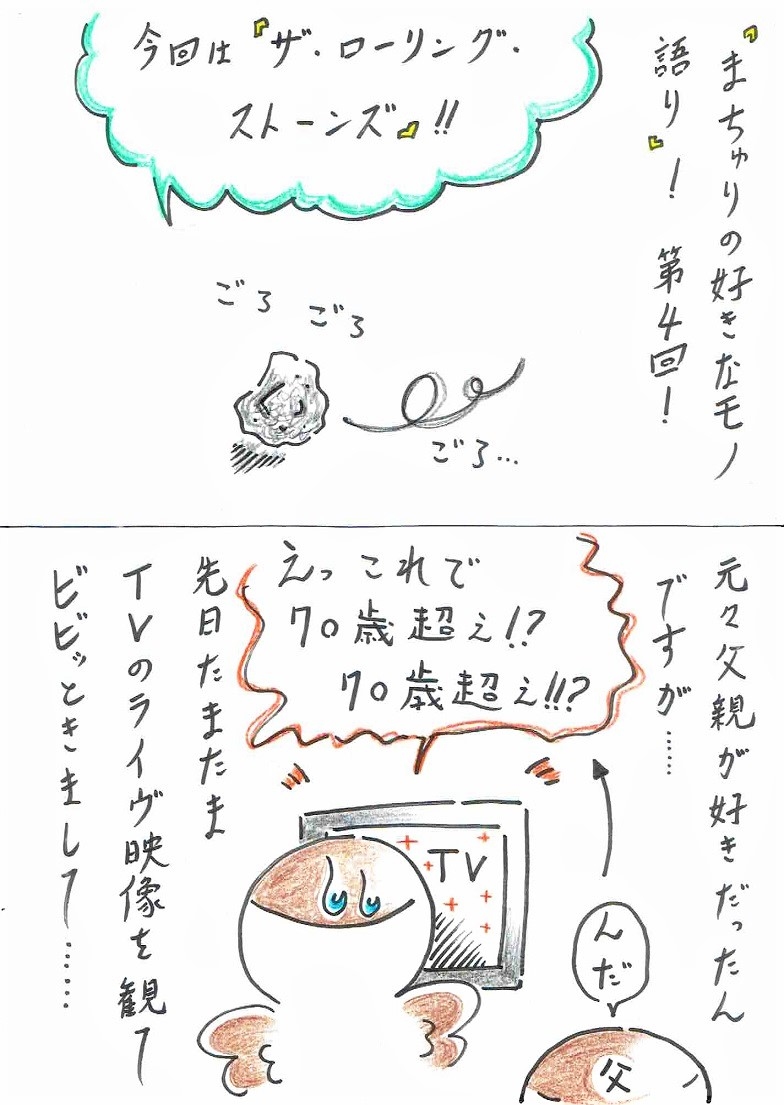 『まちゅりの好きなモノ
語り』！ 第4回！
今回は『ザ・ローリング・
ストーンズ』!!
ごろ
ごろ
ごろ…
元々父親が好きだったん
ですが……
んだ
父
えっ これで
70歳超え!?
70歳超え!!?
TV
先日たまたま
TVのライヴ映像を観て
ビビッときまして……